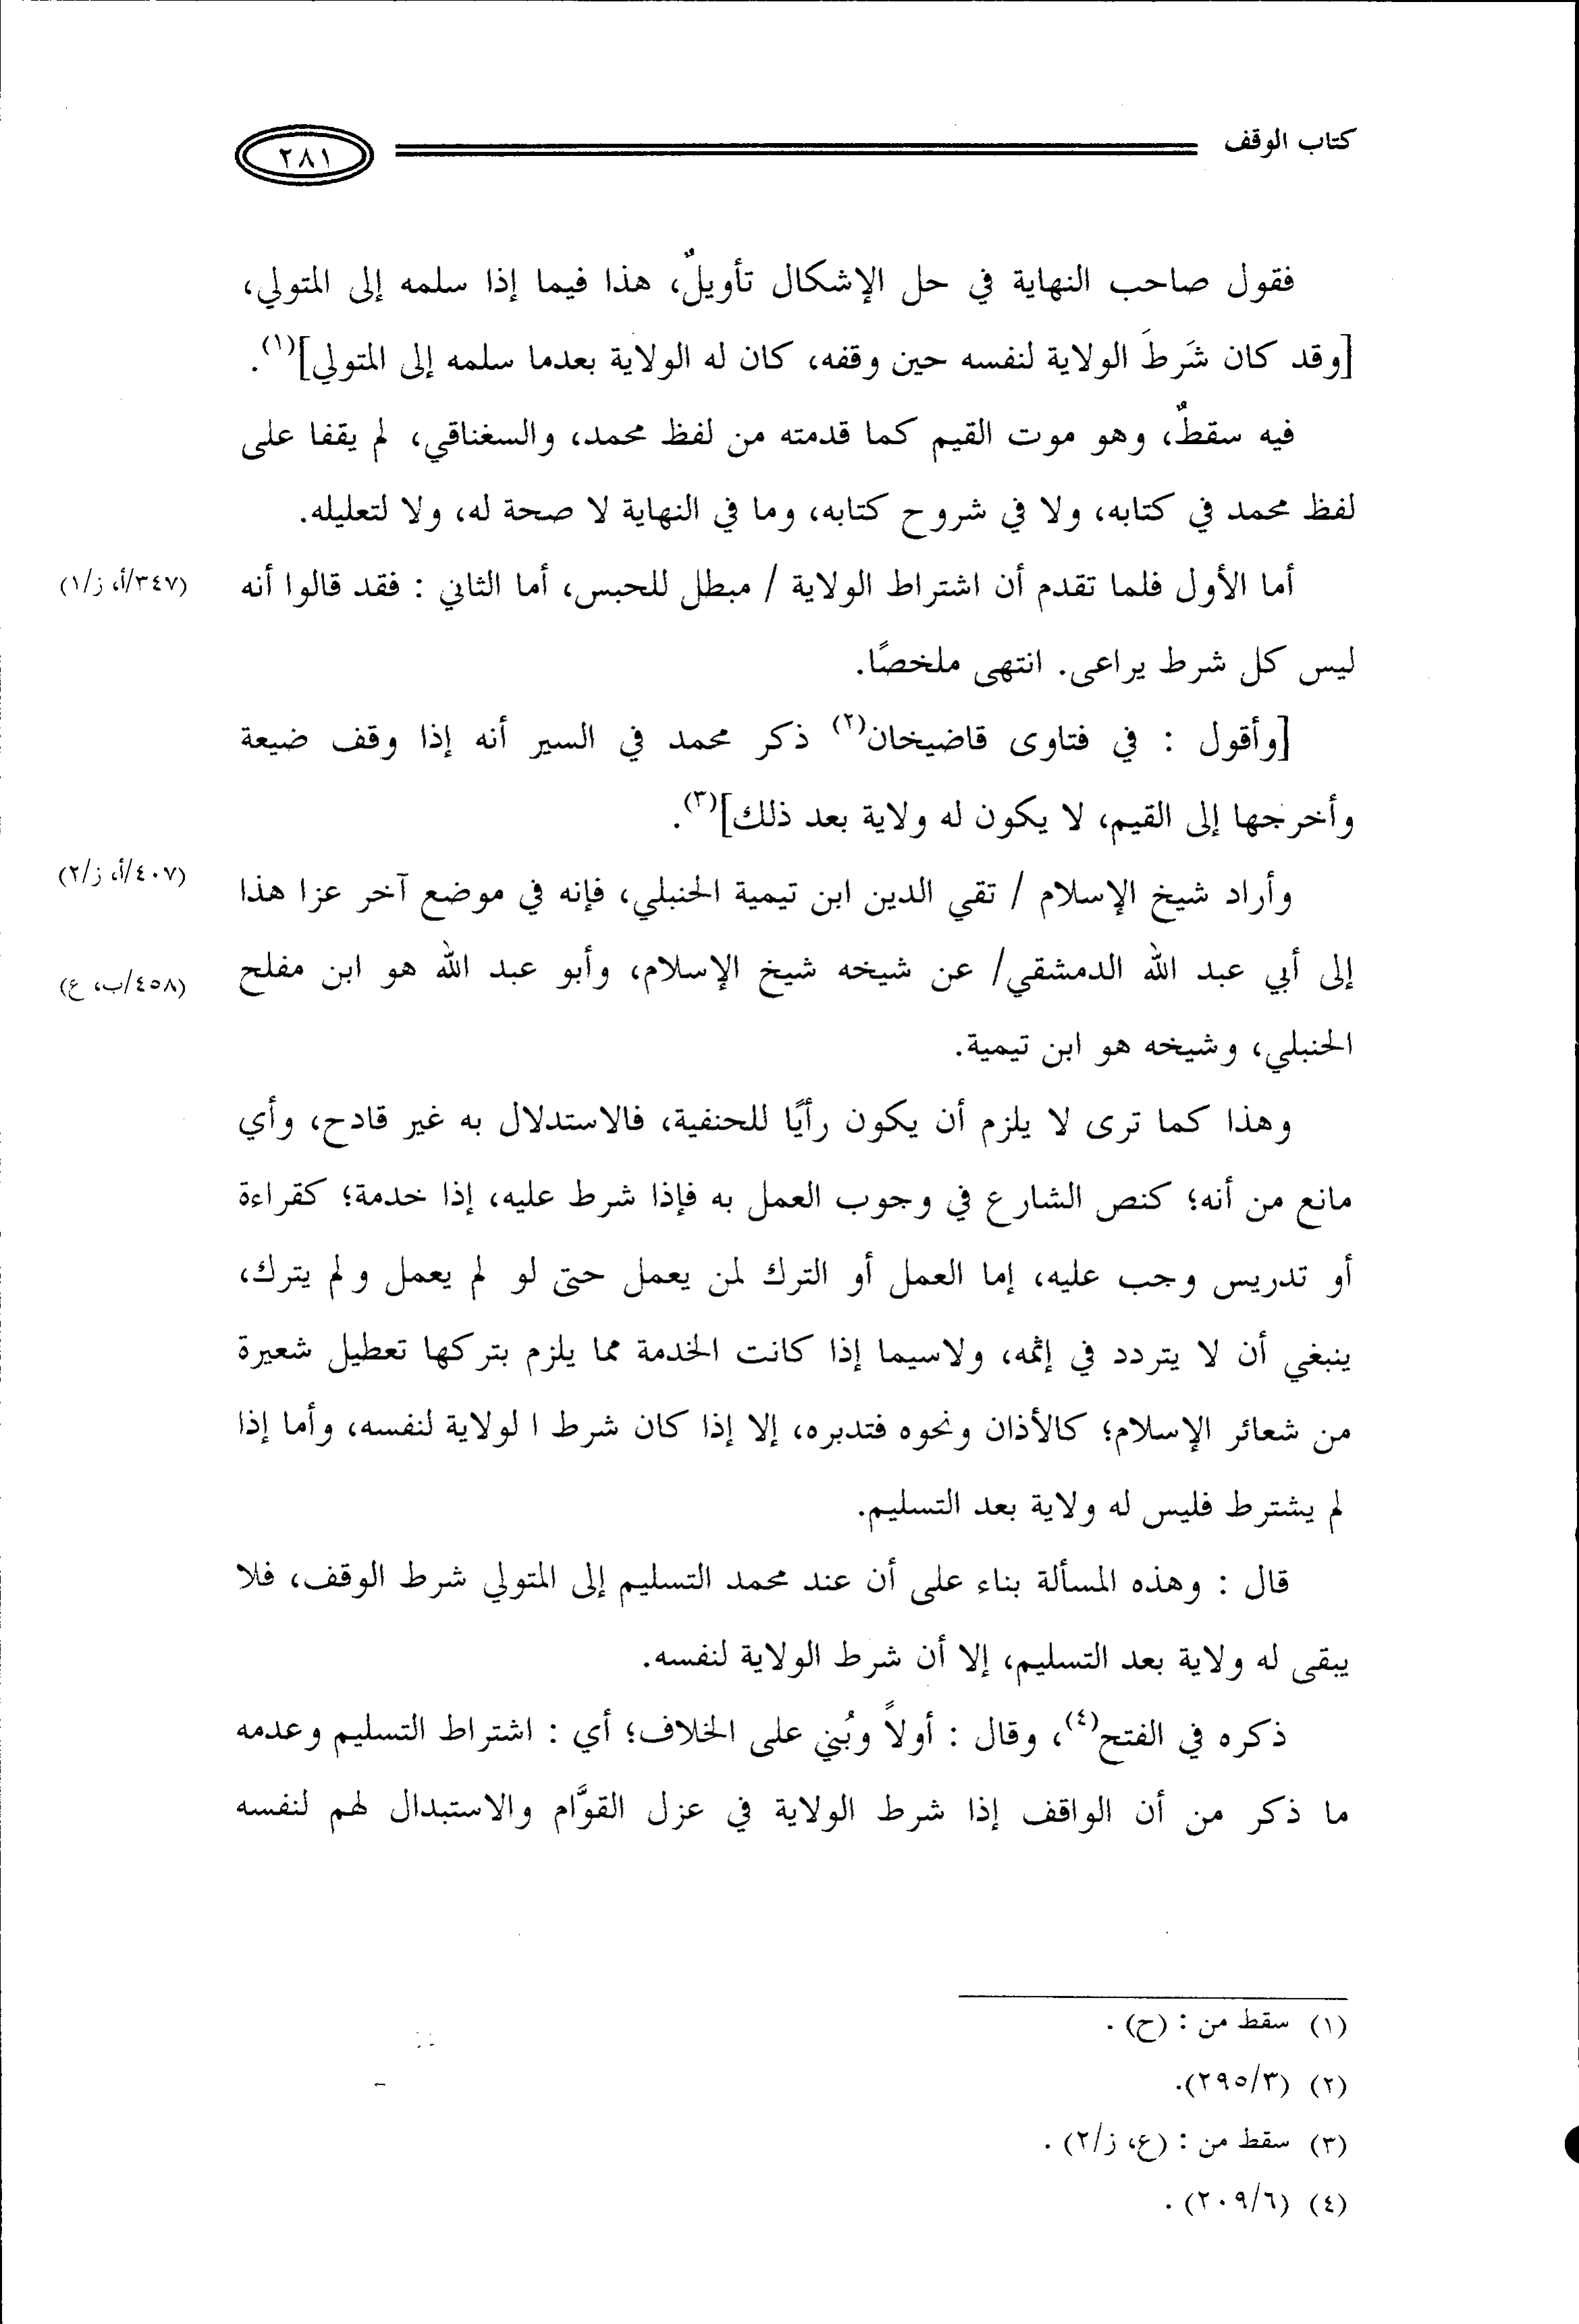 كتاب الوقف
٢٨١
فقول صاحب النهاية في حل الإشكال تأويلٌ، هذا فيما إذا سلمه إلى المتولي،
[وقد كان شَرطَ الولاية لنفسه حين وقفه، كان له الولاية بعدما سلمه إلى المتولي](١).
فيه سقطٌ، وهو موت القيم كما قدمته من لفظ محمد، والسغناقي، لم يقفا على
لفظ محمد في كتابه، ولا في شروح كتابه، وما في النهاية لا صحة له، ولا لتعليله.
أما الأول فلما تقدم أن اشتراط الولاية / مبطل للحبس، أما الثاني : فقد قالوا أنه
(٣٤٧/أ، ز/١)
ليس كل شرط يراعى. انتهى ملخصًا.
[وأقول : في فتاوى قاضيخان(٢) ذكر محمد في السير أنه إذا وقف ضيعة
وأخرجها إلى القيم، لا يكون له ولاية بعد ذلك](٣).
وأراد شيخ الإسلام / تقي الدين ابن تيمية الحنبلي، فإنه في موضع آخر عزا هذا
(٤٠٧/أ، ز/٢)
إلى أبي عبد الله الدمشقي/ عن شيخه شيخ الإسلام، وأبو عبد الله هو ابن مفلح
(٤٥٨/ب، ع)
الحنبلي، وشيخه هو ابن تيمية.
وهذا كما ترى لا يلزم أن يكون رأيًا للحنفية، فالاستدلال به غير قادح، وأي
مانع من أنه؛ كنص الشارع في وجوب العمل به فإذا شرط عليه، إذا خدمة؛ كقراءة
أو تدريس وجب عليه، إما العمل أو الترك لمن يعمل حتى لو لم يعمل ولم يترك،
ينبغي أن لا يتردد في إثمه، ولاسيما إذا كانت الخدمة مما يلزم بتركها تعطيل شعيرة
من شعائر الإسلام؛ كالأذان ونحوه فتدبره، إلا إذا كان شرط ا لولاية لنفسه، وأما إذا
لم يشترط فليس له ولاية بعد التسليم.
قال : وهذه المسألة بناء على أن عند محمد التسليم إلى المتولي شرط الوقف، فلا
يبقى له ولاية بعد التسليم، إلا أن شرط الولاية لنفسه.
ذكره في الفتح(٤)، وقال : أولاً وبُني على الخلاف؛ أي : اشتراط التسليم وعدمه
ما ذكر من أن الواقف إذا شرط الولاية في عزل القوَّام والاستبدال لهم لنفسه
(١) سقط من : (ح) .
(٢) (٢٩٥/٣).
(٣) سقط من : (ع، ز/٢) .
(٤) (٢٠٩/٦) .